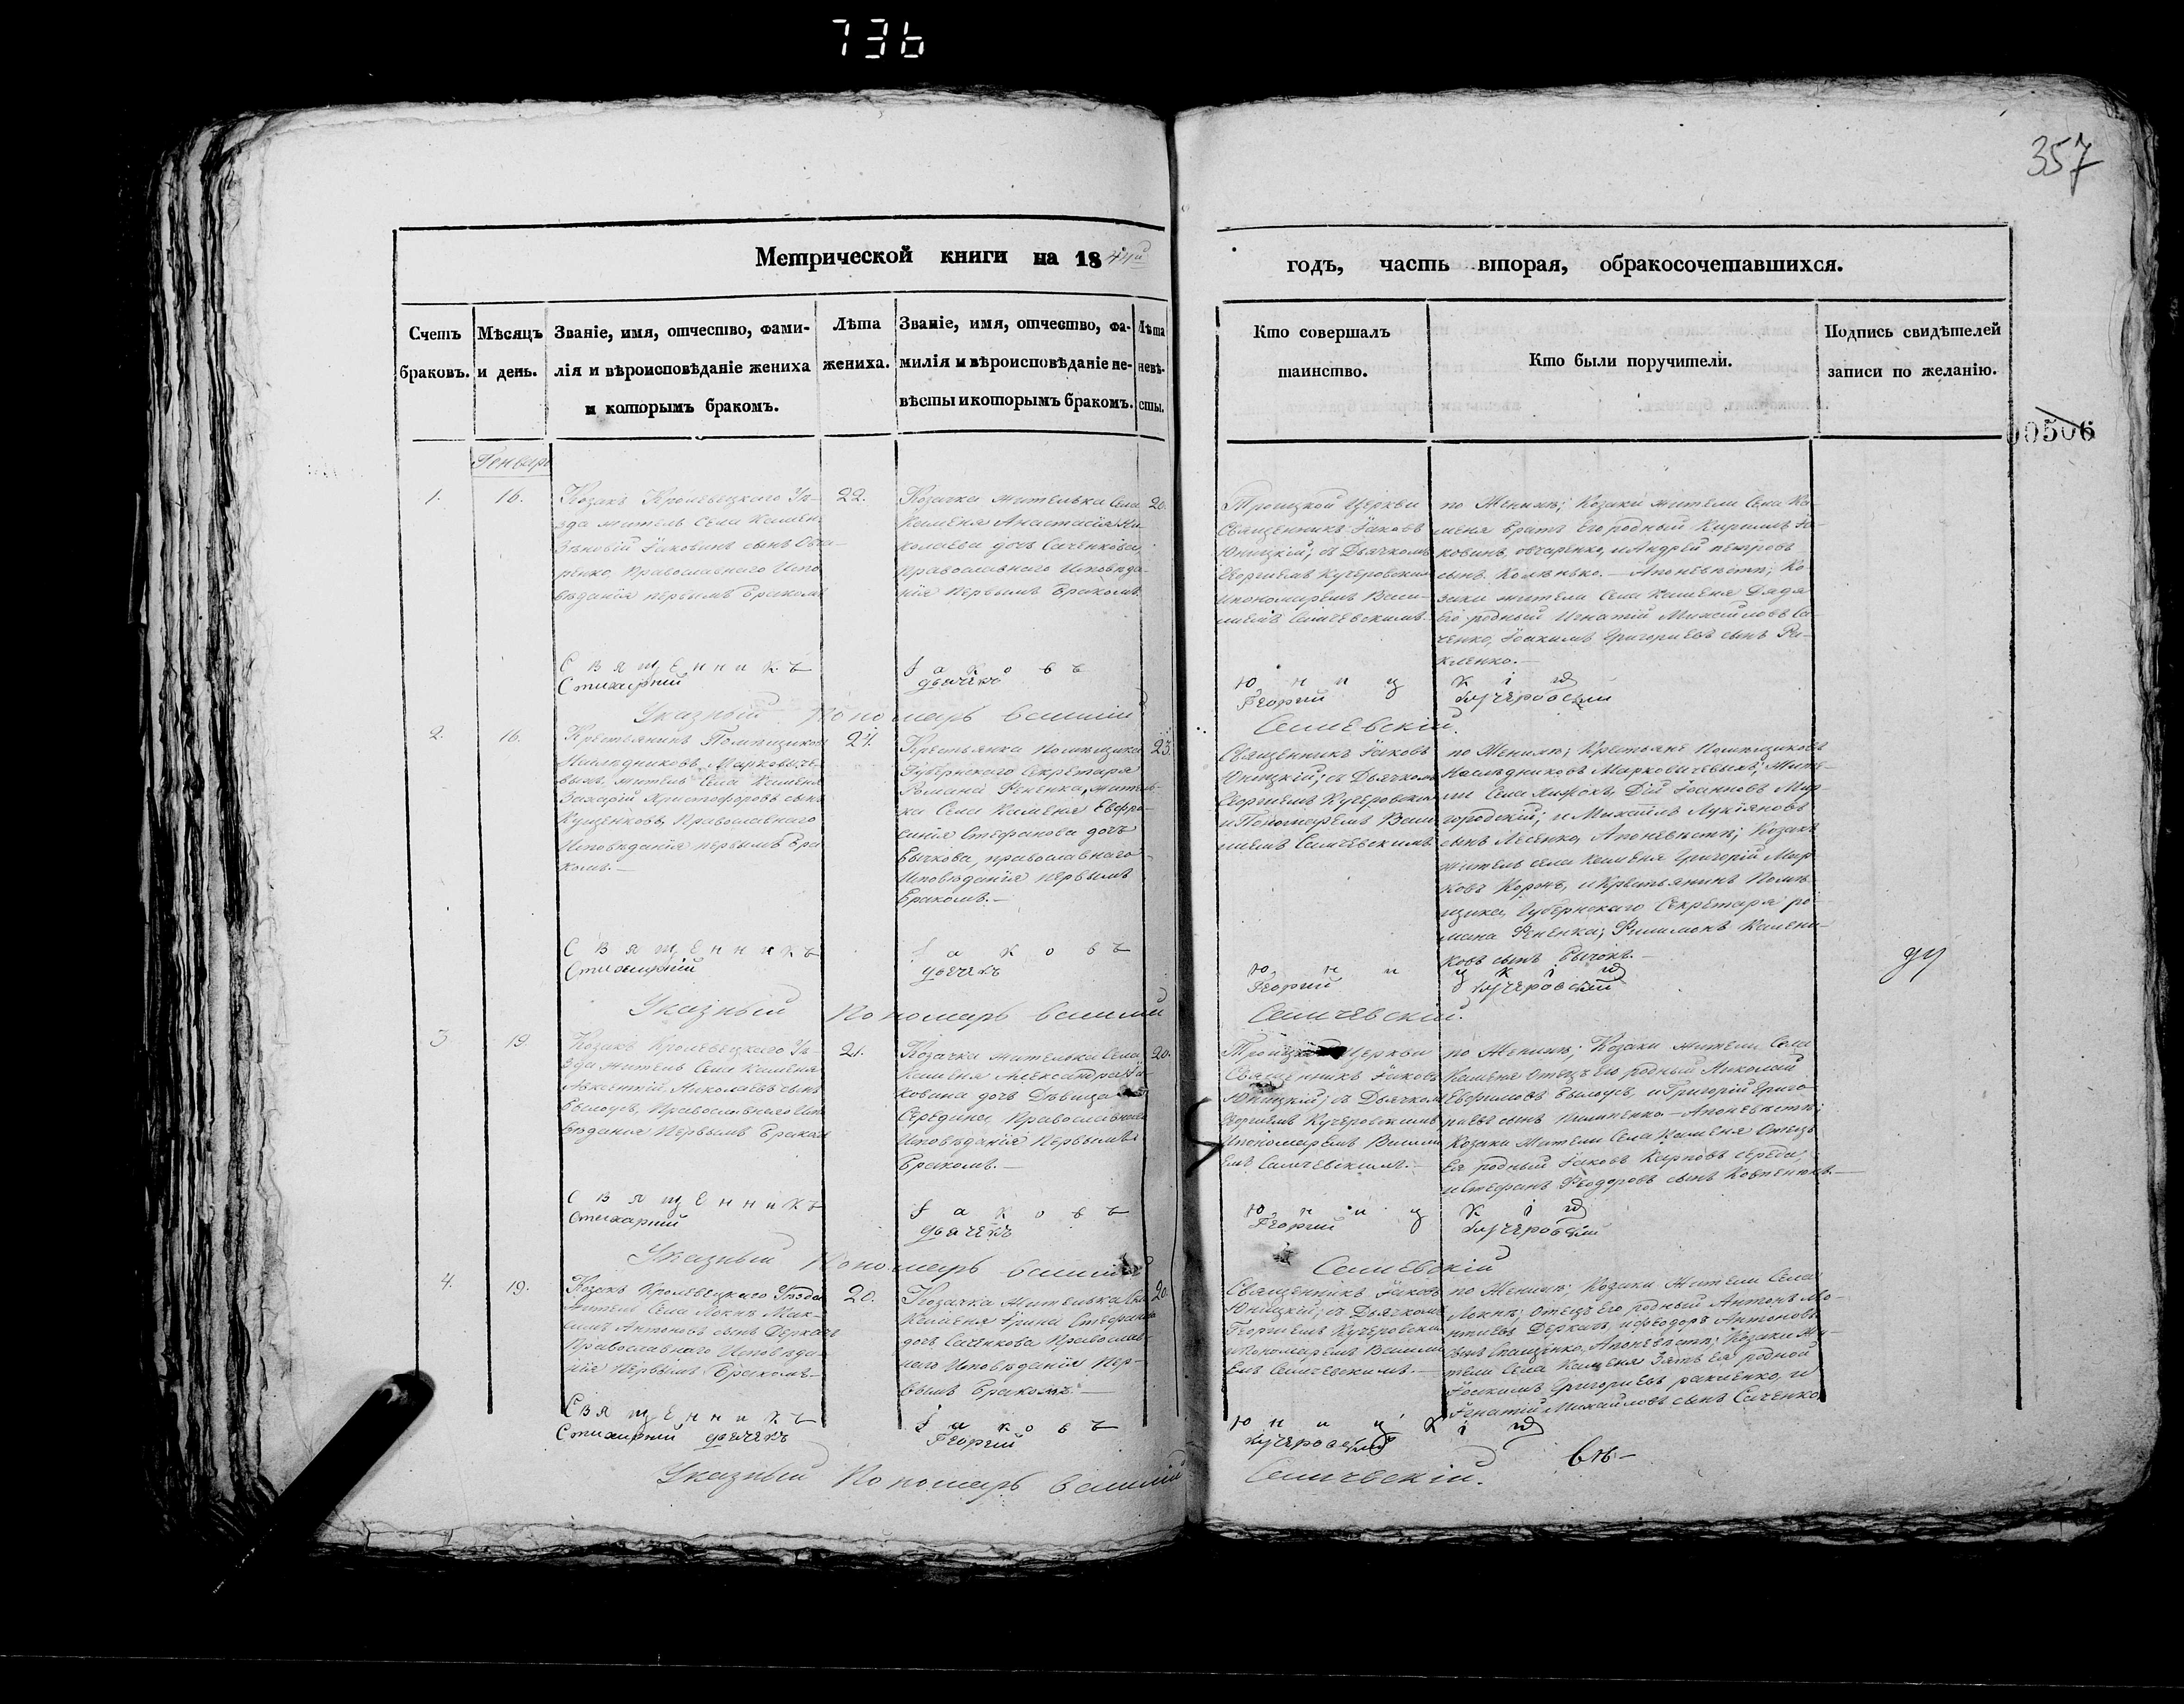 736
357
Метрической книги на 18 44й
годъ, часть вторая, обракосочетавшихся.
Счетъ браковъ.
Мѣсяцъ и день.
Званіе, имя, отчество, фами-
лія и вѣроисповѣданіе жениха
и которымъ бракомъ.
Лѣта
жениха.
Званіе, имя, отчество, фа-
милія и вѣроисповѣданіе не-
вѣсты и которымъ бракомъ.
Лѣта
невѣ-
сты.
Кто совершалъ
таинство.
Кто были поручители.
Подпись свидѣтелей
записи по желанію.
00506
Генварь
1.
16.
Козакъ Кролевецкаго Уѣ-
зда житель Села Камен
Зѣновій Іаковинъ сынъ Овча-
ренко, Православнаго Испо
вѣданія первымъ бракомъ
22.
Козачка жителька Села
Каменя Анастасія Ни-
колаева дочь Саченкова,
православнаго Исповѣда-
нія первымъ бракомъ.
20.
Троицкой Церкви
Священникъ Іаковъ
Юницкій; съ Дьячкомъ
Георгіемъ Кучеровским
ипономаремъ Васи-
ліемъ Самчевскимъ.
по Женихѣ; Козаки жители Села Ка-
меня братъ Его родный Кирилъ Іа-
ковинъ, овчаренко, и Андрей петровъ
сынъ — Апоневѣстѣ; Ко-
заки жители Села Каменя Дядя
Его родный Игнатій Михайловъ Са-
ченко, Іоакимъ Григориевъ сынъ Ра-
кленко.—
Священникъ Іаковъ Юницкій
Стихарний дьячекъ Георгий Кучеровский
Указный Пономарь Василий Самчевскій.
2.
16.
Крестьянинъ Помѣщиковъ
Наслѣдниковъ Марковиче-
выхъ, житель Села Каменя
Захарій Христофоровъ сынъ
Кущенковъ, Православнаго
Исповѣданія первымъ бра-
комъ.—
24.
Крестьянка помѣщика
Губернскаго Секретаря
Романа Жите-
ка Села Каменя Евфро-
синія Стефанова дочь
Бычкова, православнаго
Исповѣданія первымъ
бракомъ.—
23.
Священникъ Іаковъ
Юницкій; съ Дьячкомъ
Георгіемъ Кучеровским
и Пономаремъ Васи-
ліемъ Самчевскимъ.
по Женихѣ; Крестьяне Помѣщиковъ
Наслѣдниковъ Марковичевыхъ; Жите-
ли Села Іоанновъ Мир-
городский; и Михаилъ Лукіяновъ
сынъ Лесенко, Апоневѣстѣ; Козакъ
житель села Каменя Григорій Мар-
ковъ и Крестьянинъ Помѣ-
щика, Губернскаго Секретаря Ро-
мана Филимонъ
сынъ Бычокъ.—
Священникъ Іаковъ Юницкій
Стихарний дьячекъ Георгий Кучеровский
Указный Пономарь Василий Самчевскій.
3
19
Козакъ Кролевецкаго Уѣ-
зда житель Села Каменя
Авксентій Николаевъ сынъ
Былоусъ, Православнаго Испо
вѣданія Первымъ бракомъ
21.
Козачка жителька Села
Каменя Александра Іа-
ковина дочь Дѣвица
Середина, Православнаго
Исповѣданія Первымъ
бракомъ.—
20.
Троицкой Церкви
Священникъ Іаковъ
Юницкій; съ Дьячком
Георгіемъ Кучеровскимъ
Ипономаремъ Васили
емъ Самчевскимъ.—
по Женихѣ; Козаки жители Села
Каменя Отецъ Его родный Николай
Евфимовъ Былоусъ, и Григорій Григо-
риевъ сынъ — Апоневѣстѣ;
Козаки жители Села Каменя Отецъ
Ея родный Іаковъ Карповъ середа,
и Стефанъ Ѳеодоровъ сынъ
Священникъ Іаковъ Юницкій
Стихарний дьячекъ Георгий Кучеровский
Указный Пономарь Василий Самчевскій
4.
19.
Козакъ Кролевецкаго Уѣзда
житель Села Локнѣ Мак-
симъ Антоновъ сынъ Деркачъ
Православнаго Исповѣда-
нія Первымъ бракомъ—
20.
Козачка Жителька Села
Каменя Ірина Стефанова
дочь Саченкова Православ-
наго Исповѣданія Пер-
вымъ бракомъ.—
20.
Священникъ Іаковъ
Юницкій; съ Дьячкомъ
Георгіемъ Кучеровским
ипономаремъ Васили
емъ Самчевскимъ.—
по Женихѣ; Козаки Жители Села
Локнѣ; Отецъ Его родный Антонъ
Деркачъ, иѳеодоръ Антоновъ
сынъ Апоневѣстѣ; Козаки Жи-
тели Села Каменя Зять Ея родной
Іоакимъ Григориевъ ракленко, и
Игнатій Михайловъ сынъ Саченко
Священникъ Іаковъ Юницкій
Стихарний дьячекъ Георгий Кучеровский
Указный Пономарь Василий Самчевскій.